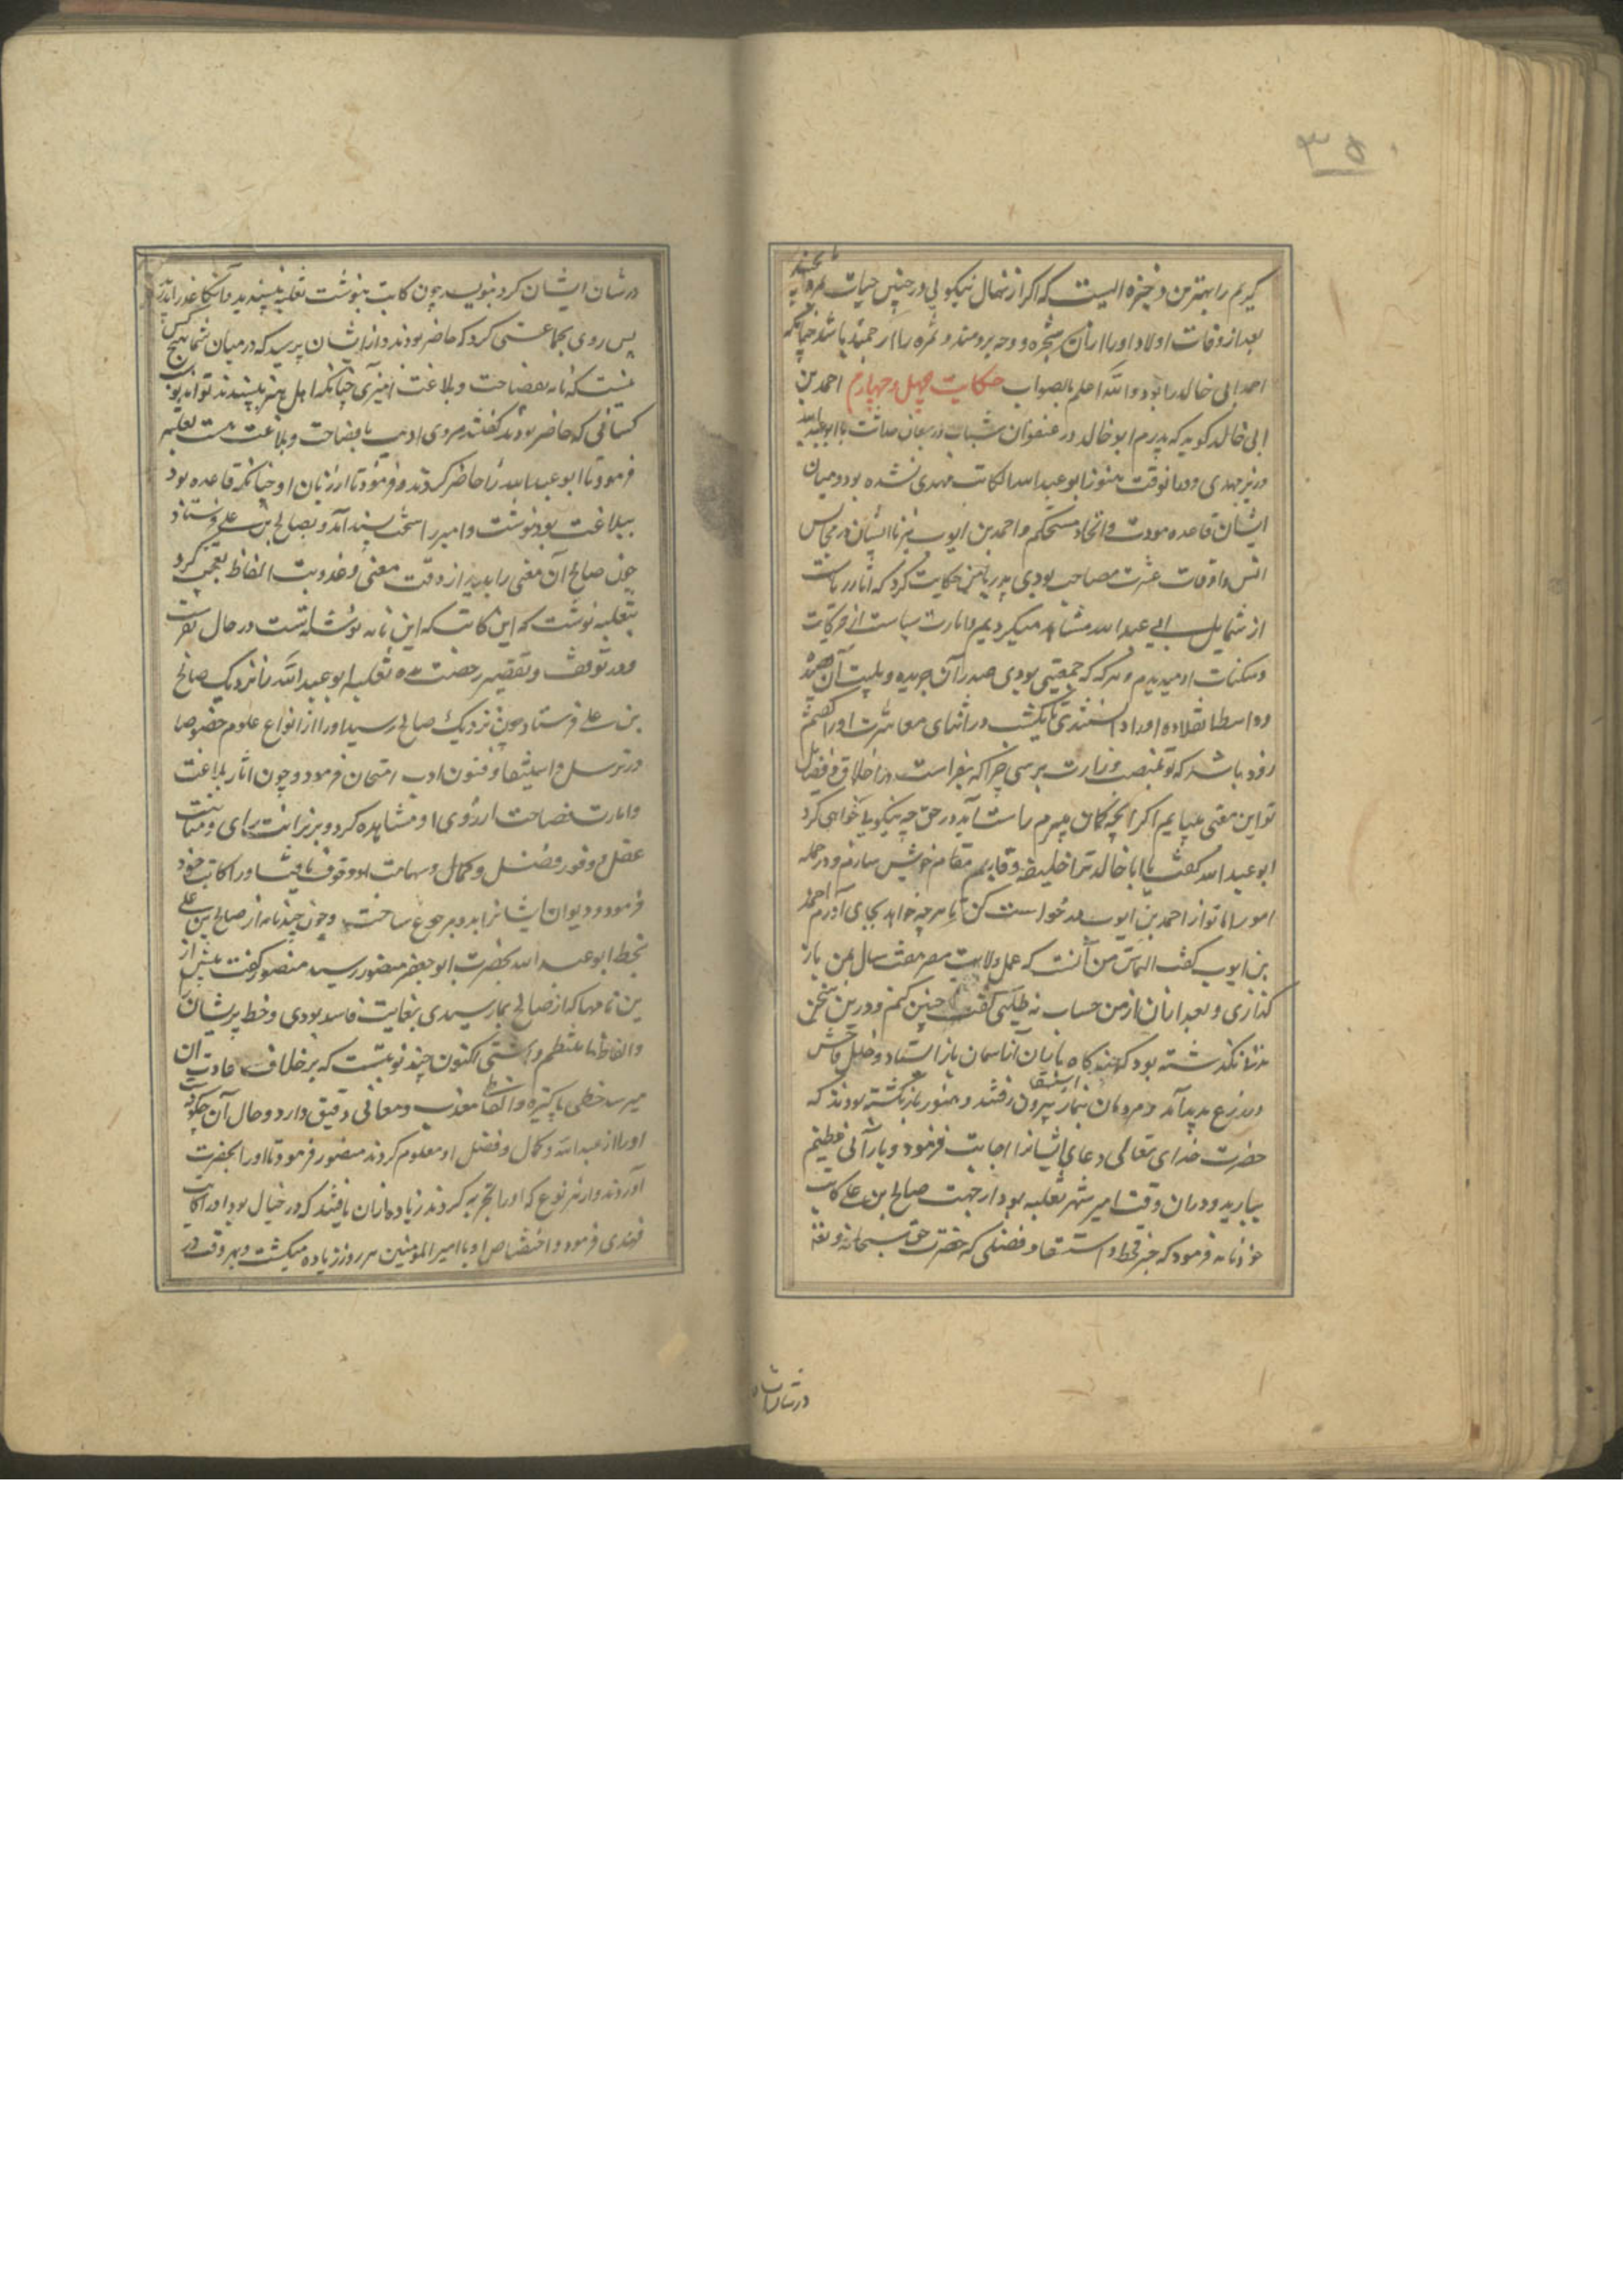 ۳۵۰
کریم را بهترین ذخیره الیست که اکر از نهال نیکویی در حین حیات ثمره نچیند
بعد از وفات اولاد او را از آن شجره و دوحه برومند و ثمره با ارجمند باشد چنانکه
احمد ابی خالد را بود والله اعلم بالصواب حکایت چهل و چهارم احمد بن
ابی خالد کوید که پدرم ابو خالد در عنفوان شباب و ریعان حداثت با ابو عبدالله
وزیر مهدی و در آنوقت هنوز ابو عبدالله کاتب مهدی نشده بود و میان
ایشان قاعده مودت و اتحاد مستحکم و احمد بن ایوب نیز با ایشان در مجالس
انس و اوقات عشرت مصاحب بودی پدر با من حکایت کرد که آثار ریاست
از شمایل ابی عبدالله مشاهده میکردیم و امارت سیاست از حرکات
و سکنات او میدیدم و هر که که جمعیتی بودی صدر آن جریده و بیت آن قصیده
و واسطه قلاده او را دانستندی تا یکشب در اثنای معاشرت او را کفتم
زود باشد که تو بمنصب وزارت برسی چرا که بفراست در اخلاق و فضایل
تو این معنی می‌یابم اکر آنچه کمان میبرم راست آید در حق من چه نیکویی خواهی کرد
ابو عبدالله کفت یا ابا خالد ترا خلیفه و قایم مقام خویش سازم و در جمله
امور اما تو از احمد بن ایوب درخواست کن تا هر چه خواهد بجای آورم احمد
بن ایوب کفت التماس من آنست که عمل ولایت مصر هفت سال بمن باز
کذاری و بعد از آن از من حساب نه طلبی کفت چنین کنم و درین سخن
مدتها نکذشته بود که چند کاه باران از آسمان باز ایستاد و خلل فاحش
در زرع پدید آمد و مردمان بنماز استسقا بیرون رفتند و هنوز باز نکشته بودند که
حضرت خدای تعالی دعای ایشانرا اجابت فرمود و بارانی عظیم
ببارید و در آن وقت امیر شهر ثعلبه بود از جهت صالح بن علی کاتب
خود را فرمود که خبر قحط و استسقا و فضلی که حضرت حق سبحانه و تعالی
در شان ایشان
در شان ایشان کرد بنویسد چون کاتب بنوشت ثعلبه نپسندید و آن کاغذ را بدرید
پس روی بجماعتی کرد که حاضر بودند و از ایشان پرسید که در میان شما هیچ کس
نیست که نامه بفصاحت و بلاغت آمیزی چنانکه اهل هنر بپسندند تواند نوشت
کسانی که حاضر بودند کفتند مردی ادیب با فصاحت و بلاغت هست ثعلبه
فرمود تا ابو عبدالله را حاضر کردند و فرمود تا از زبان او چنانکه قاعده بود
ببلاغت بنوشت و امیر را سخت پسند آمد و بصالح بن علی فرستاد
چون صالح آن معنی را بدید از دقت معنی و عذوبت الفاظ تعجب کرد
بثعلبه نوشت که این کاتب که این نامه نوشته است در حال بفرست
و در توقف و تقصیر رخصت مده ثعلبه ابو عبدالله را نزدیک صالح
بن علی فرستاد چون نزدیک صالح رسید او را از انواع علوم خصوصا
در ترسل و استیفا و فنون ادب امتحان فرمود و چون آثار بلاغت
و امارت فصاحت از روی او مشاهده کرد و بر رزانت رای و متانت
عقل و وفور فضل و کمال و شهامت او وقوف یافت او را کاتب خود
فرمود و دیوان ایشانرا بدو مرجوع ساخت و چون چند نامه از صالح بن علی
بخط ابو عبدالله بحضرت ابو جعفر منصور رسید منصور کفت پیش از
ین نامها که از صالح بما رسیدی بغایت فاسد بودی و خط پریشان
و الفاظ نا منتظم داشتی اکنون چند نوبتست که بر خلاف عادت آن
میرسد خطی پاکیزه و الفاظی معذب و معانی دقیق دارد و حال آن چکونه است
او را از عبدالله و کمال و فضل او معلوم کردند منصور فرمود تا او را بحضرت
آوردند و از هر نوع که او را تجربه کردند زیاده از آن یافتند که در خیال بود او را کاتب
مهدی فرمود و اختصاص او با امیر المؤمنین هر روز زیاده میکشت و بهر وقت در